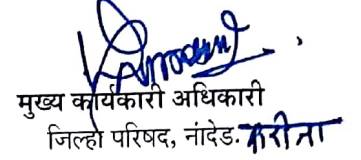 मुख्य कार्यकारी अधिकारी
जिल्हा परिषद, नांदेड. करीता